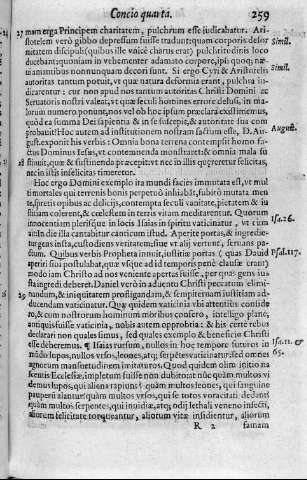 Concio quarta. 259
27 mam erga Principem charitatem, pulchrum esse iudicabatur. Ari-
stotelem verò gibbo depressum fuisse tradunt: quam corporis defor
mitatem discipuli (quibus ille vnicè charus erat) pulchritudinis loco
Simil.
ducebant: quoniam in vehementer adamato corpore, ipsi quoq; næ-
ui amantibus nonnunquam decori sunt. Si ergo Cyri & Aristotelis
Simil.
autoritas tantum potuit, vt quæ natura deformia erant, pulchra in-
dicarentur: cur non apud nos tantum autoritas Christi Domini ac
Seruatoris nostri valeat, vt quæ seculi homines errore delusi, in ma-
lorum numero ponunt, nos vel ob hoc ipsum præclara existimemus,
quòd ea summa Dei sapientia & in se suscepit, & autoritate sua com
probauit? Hoc autem ad institutionem nostram factum esse, D. Au-
August.
gust. exponit his verbis: Omnia bona terrena contemplit homo fa-
ctus Dominus Iesus, vt contemnenda monstraret: & omnia mala su
28 stinuit, quæ & sustinenda præcepit: vt nec in illis quæreretur felicitas,
nec in istis infelicitas timeretur.
Hoc ergo Domini exemplo ita mundi facies immutata est, vt mul
ti mortales qui terrenis bonis perpetuò inhiabāt, subitò mutata men
te, spretis opibus ac delicijs, contempta seculi vanitate, pietatem & iu
stitiam colerent, & cœlestem in terris vitam meditarentur. Quorum
innocentiam plerisque in locis Isaias in spiritu vaticinatur, vt cùm
Isa. 26.
tantis die illa cantabitur canticum istud. Aperite portas, & ingredie-
tur gens iusta, custodiens veritatem: siue vt alij vertunt, seruans pa-
ctum. Quibus verbis Propheta innuit, iustitiæ portas (quas Dauid
Psal. 117.
aperiri sibi postulabat, quæ vsque ad id tempus penè clausæ erant)
modo iam Christo ad nos veniente apertus fuisse, per quas gens iu-
sta ingredi deberet. Daniel verò in aduentu Christi peccatum elimi-
29 nandum, & iniquitatem profligandam, & sempiternam iustitiam ad-
ducendam vaticinatur. Quæ quidem vaticinia vbi attentiùs confide
ro, & cum nostrorum hominum moribus confero, intelligo planè,
antiquis fuisse vaticinia, nobis autem opprobria: & his certè rebus
declarari non quales simus, sed quales exemplo & beneficio Christi
esse deberemus. ¶ Isaias rursum, nullos in hoc tempore futuros in
Isa. 11. &
mūdo lupos, nullos vrsos, leones, atq; serpētes vaticinatur: sed omnes
65.
agnorum mansuetudinem imitaturos. Quod quidem olim initio na
scentis Ecclesiæ, impletum fuisse non dubito: at nūc quàm multos vi
demus lupos, qui aliena rapiunt? quàm multos leones, qui sanguine
pauperū alantur? quàm multos vrsos, qui se totos voracitati dedant?
quàm multos serpentes, qui inuidiæ, atq; odij lethali veneno infecti,
aliorum felicitate torqueantur, aliorum vitæ insidientur, aliorum
R 2 famam